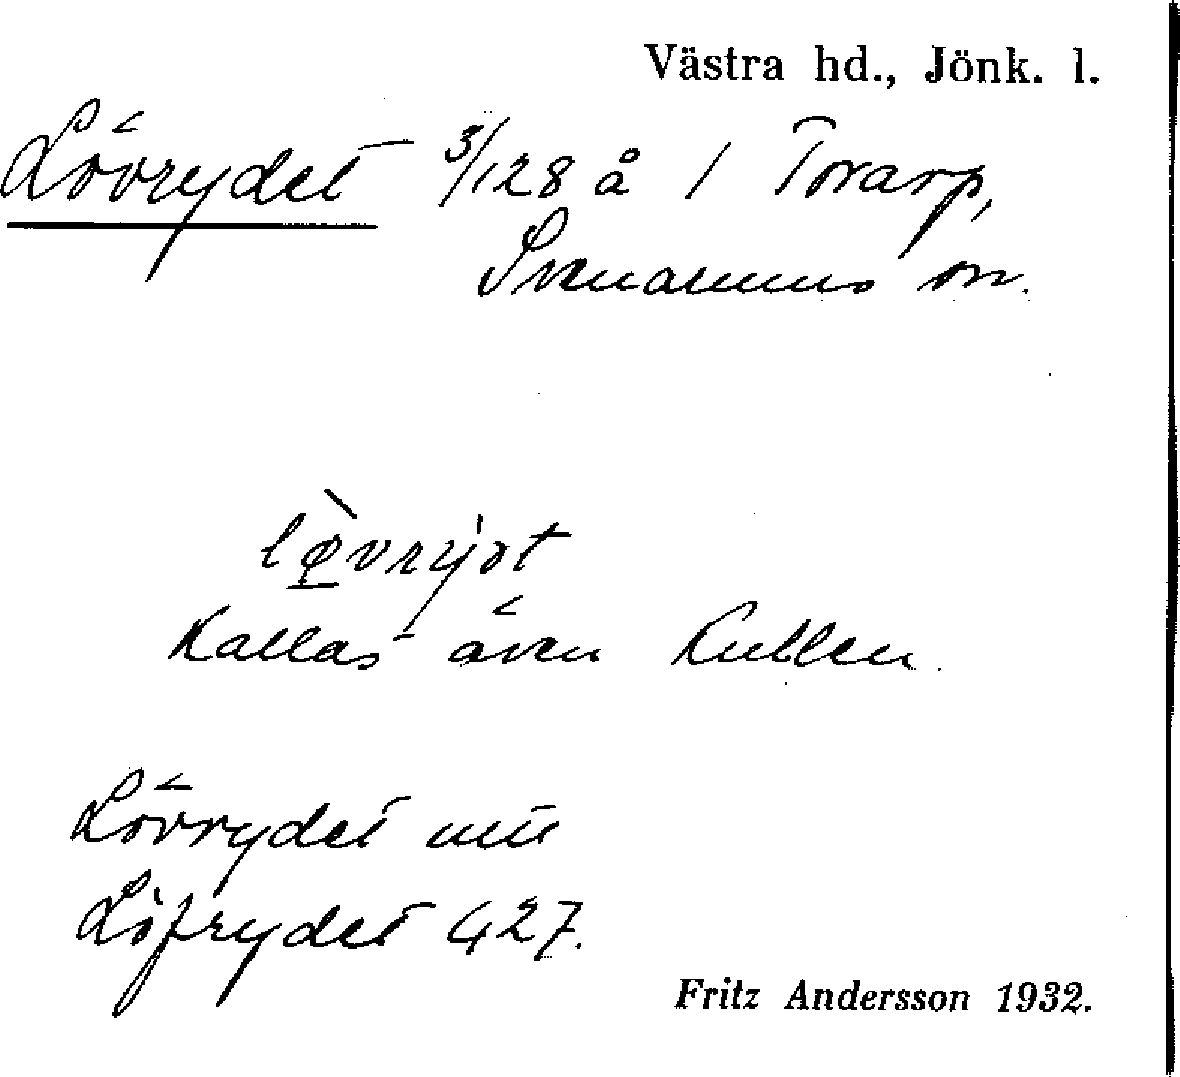 Västra hd., Jönk. l.
Lövrydet 3/128 å 1 Torarp,
Svenarums sn.
lø̀vryjət
Kallas även Kullen.
Lövrydet
Löfrydet 427.
Fritz Andersson 1932.